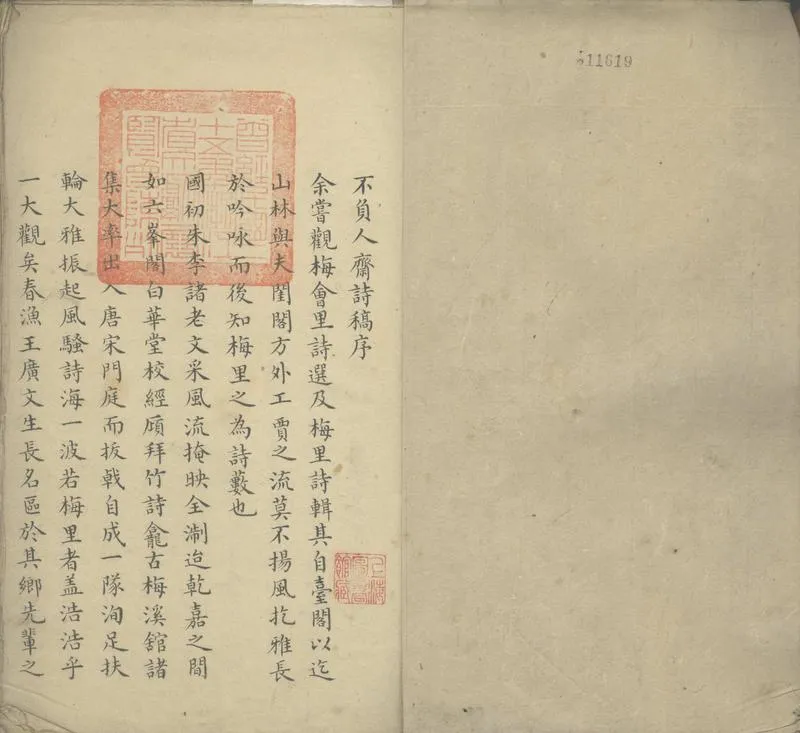 11619
不負人齋詩稿序
余嘗觀梅會里詩選及梅里詩輯其自臺閣以迄
山林與夫閨閣方外工賈之流莫不揚風扢雅長
於吟咏而後知梅里之為詩藪也
國初朱李諸老文采風流掩映全浙迨乾嘉之間
如六峯閣白華堂校經廎拜竹詩龕古梅溪舘諸
集大率出入唐宋門庭而拔戟自成一隊洵足扶
輪大雅振起風騷詩海一波若梅里者盖浩浩乎
一大觀矣春漁王廣文生長名區於其鄉先輩之